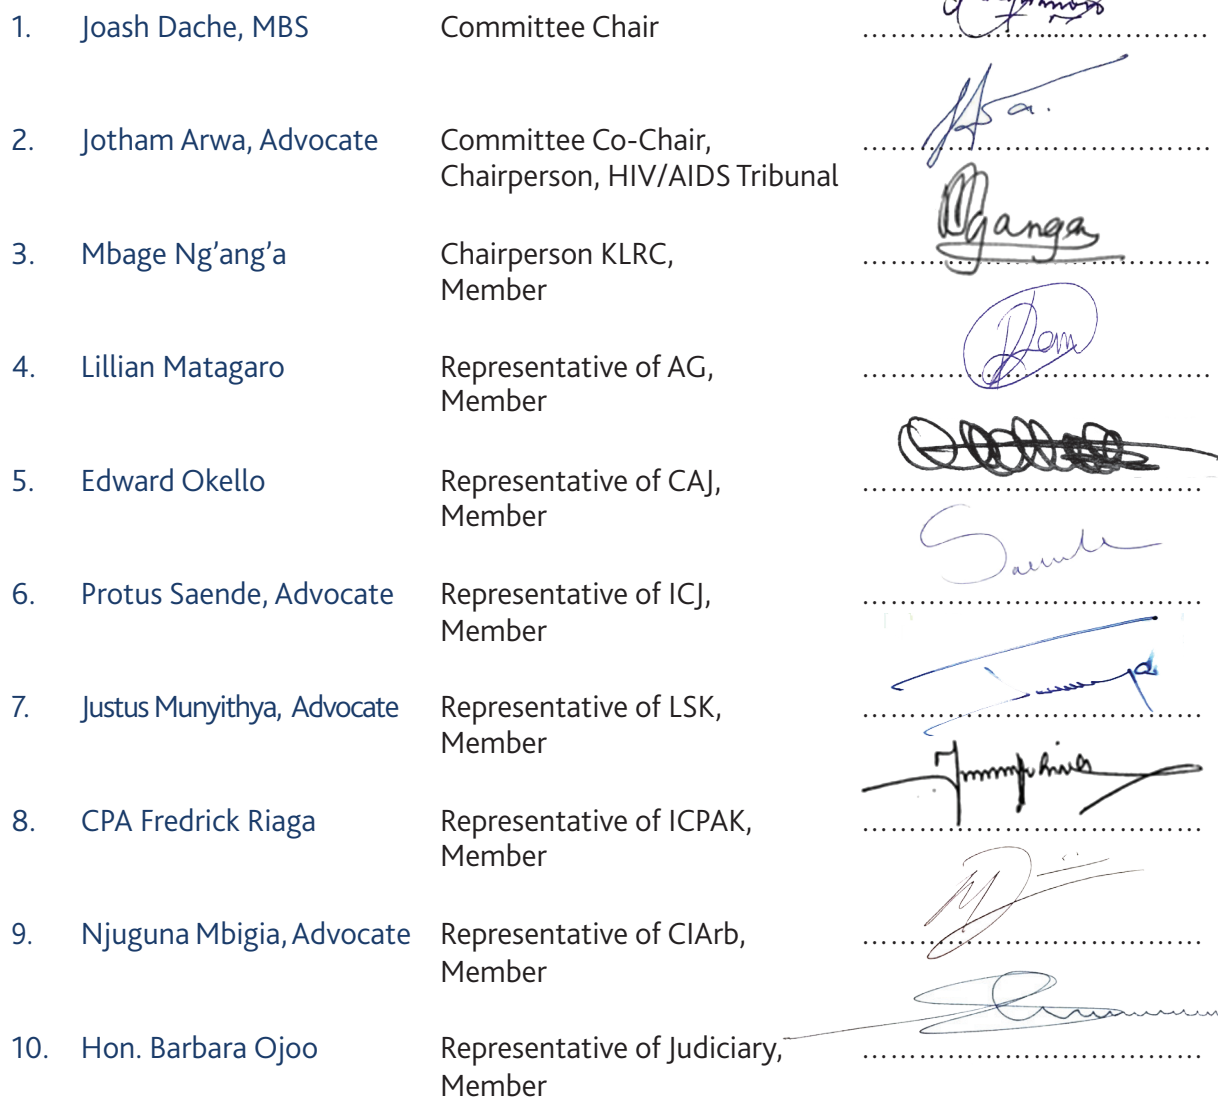 1. Joash Dache, MBS Committee Chair ……………………………
2. Jotham Arwa, Advocate Committee Co-Chair, …………………………….
Chairperson, HIV/AIDS Tribunal
3. Mbage Ng’ang’a Chairperson KLRC, …………………………….
Member
4. Lillian Matagaro Representative of AG, …………………………….
Member
5. Edward Okello Representative of CAJ, ……………………………
Member
6. Protus Saende, Advocate Representative of ICJ, ……………………………
Member
7. Justus Munyithya, Advocate Representative of LSK, ……………………………
Member
8. CPA Fredrick Riaga Representative of ICPAK, ……………………………
Member
9. Njuguna Mbigia, Advocate Representative of CIArb, ……………………………
Member
10. Hon. Barbara Ojoo Representative of Judiciary, ……………………………
Member